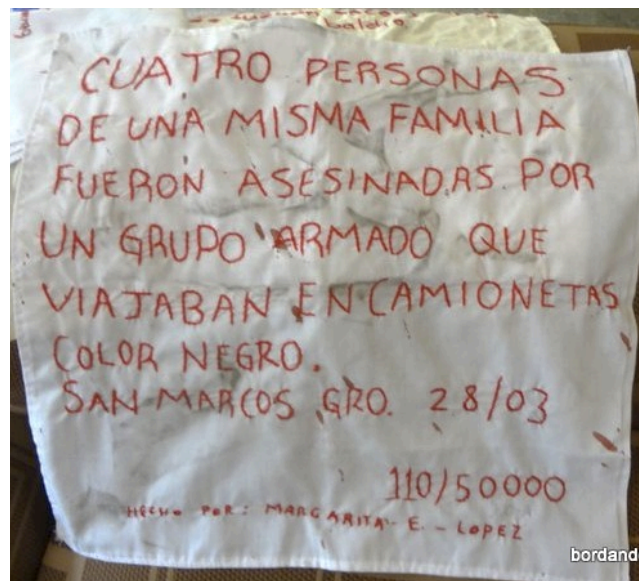 baldío
CUATRO PERSONAS
DE UNA MISMA FAMILIA
FUERON ASESINADAS POR
UN GRUPO ARMADO QUE
VIAJABAN EN CAMIONETAS
COLOR NEGRO.
SAN MARCOS GRO. 28/03
110/50000
HECHO POR: MARGARITA E. - LOPEZ
bordand